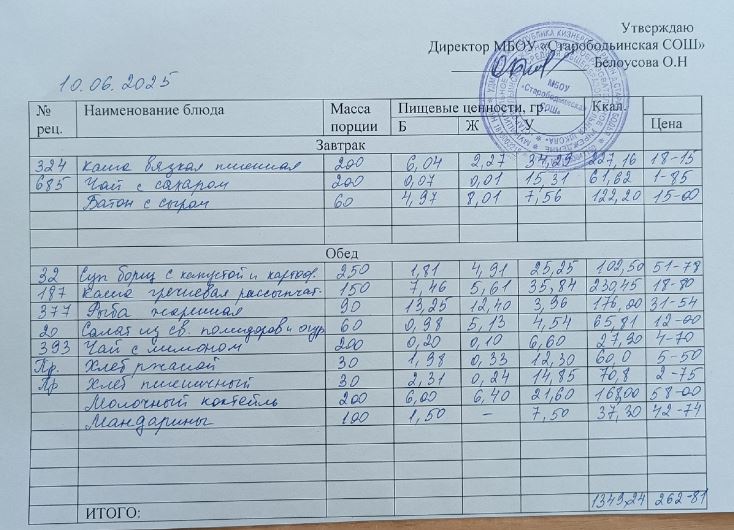 Утверждаю
Директор МБОУ «Старободьинская СОШ»
Белоусова О.Н
МБОУ «Старободьинская СОШ»
10.06.2025
№ рец. Наименование блюда Масса порции Пищевые ценности, гр. Ккал. Цена
Б Ж У
Завтрак
324 Каша вязкая пшенная 200 6,04 2,27 34,29 227,16 18-15
685 Чай с сахаром 200 0,07 0,01 15,31 61,62 1-85
Батон с сыром 60 4,97 8,01 7,56 122,20 15-00
Обед
32 Суп борщ с капустой и картоф. 250 1,81 4,91 25,25 102,50 51-78
187 Каша гречневая рассыпчат. 150 7,46 5,61 35,84 230,45 18-80
377 Рыба жареная 90 13,25 12,40 3,96 176,00 31-54
20 Салат из св. помидоров и огур 60 0,98 5,13 4,54 65,81 12-00
393 Чай с лимоном 200 0,20 0,10 6,60 27,90 4-70
Пр. Хлеб ржаной 30 1,98 0,33 12,30 60,0 5-50
Пр Хлеб пшеничный 30 2,31 0,24 14,85 70,8 2-75
Молочный коктейль 200 6,00 6,40 21,60 168,00 58-00
Мандарины 100 1,50 – 7,50 37,30 42-74
ИТОГО: 1349,24 262-81